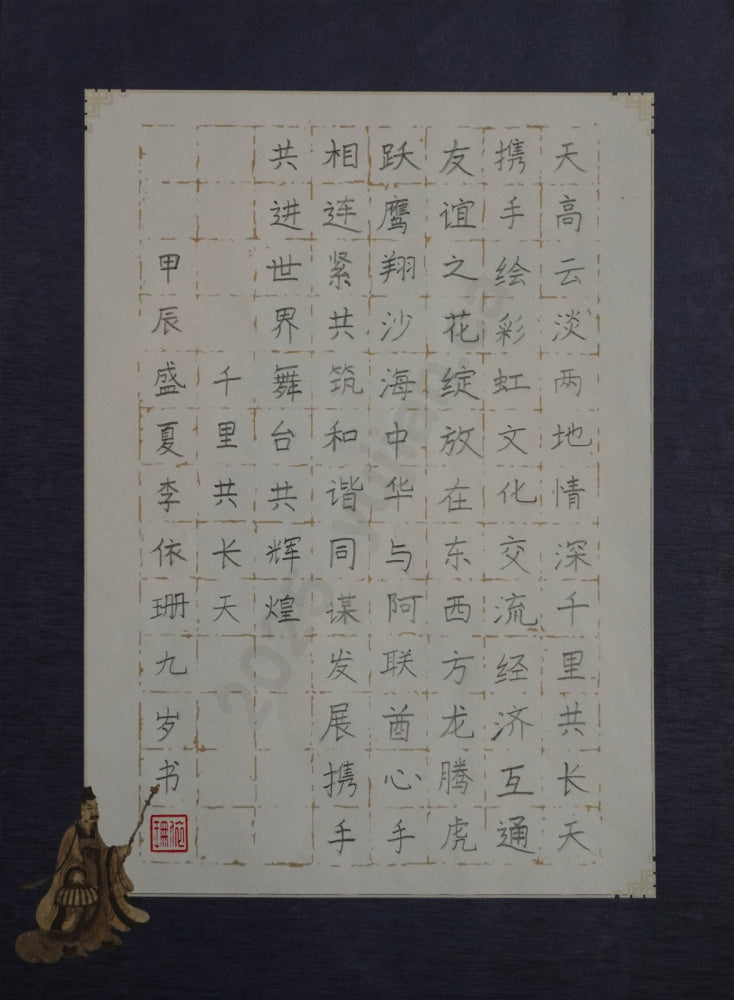 天高云淡两地情深千里共长天
携手绘彩虹文化交流经济互通
友谊之花绽放在东西方龙腾虎
跃鹰翔沙海中华与阿联酋心手
相连紧共筑和谐同谋发展携手
共进世界舞台共辉煌
千里共长天
甲辰盛夏李依珊九岁书
依珊